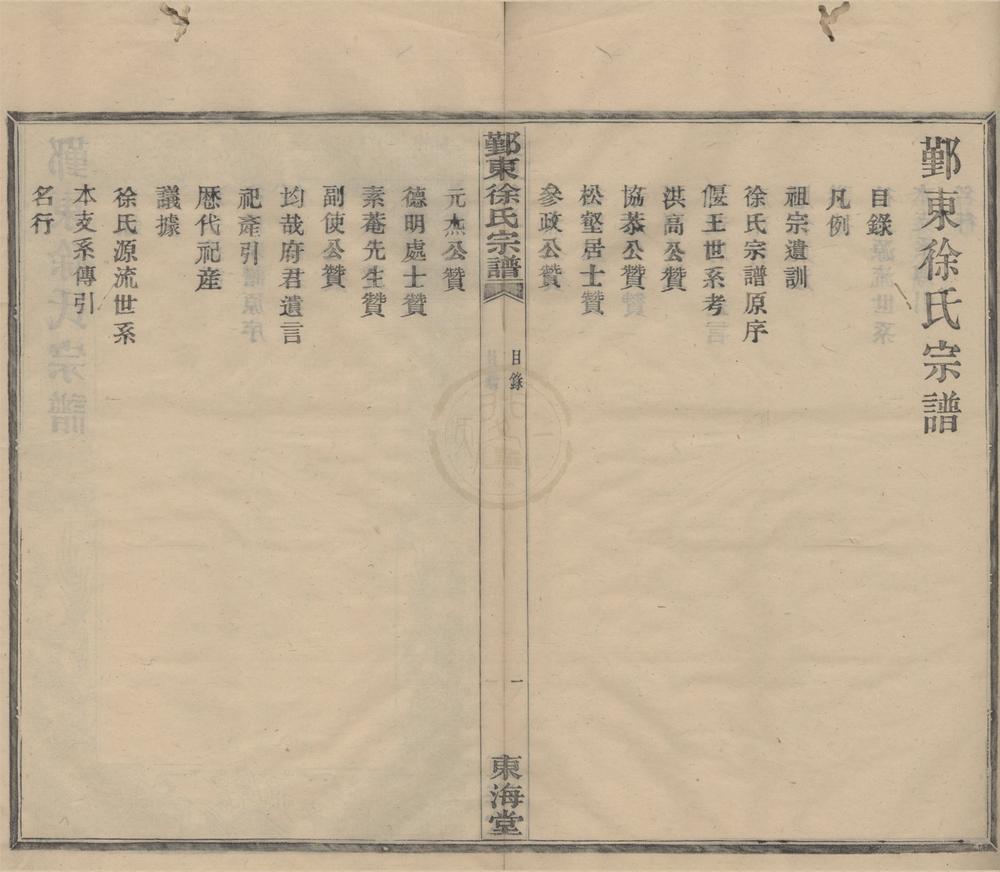 鄞東徐氏宗譜
目錄
凡例
祖宗遺訓
徐氏宗譜原序
偃王世系考
洪高公贊
協恭公贊
松壑居士贊
參政公贊
鄞東徐氏宗譜
目錄
一
東海堂
元杰公贊
德明處士贊
素菴先生贊
副使公贊
均哉府君遺言
祀產引
歷代祀產
議據
徐氏源流世系
本支系傳引
名行